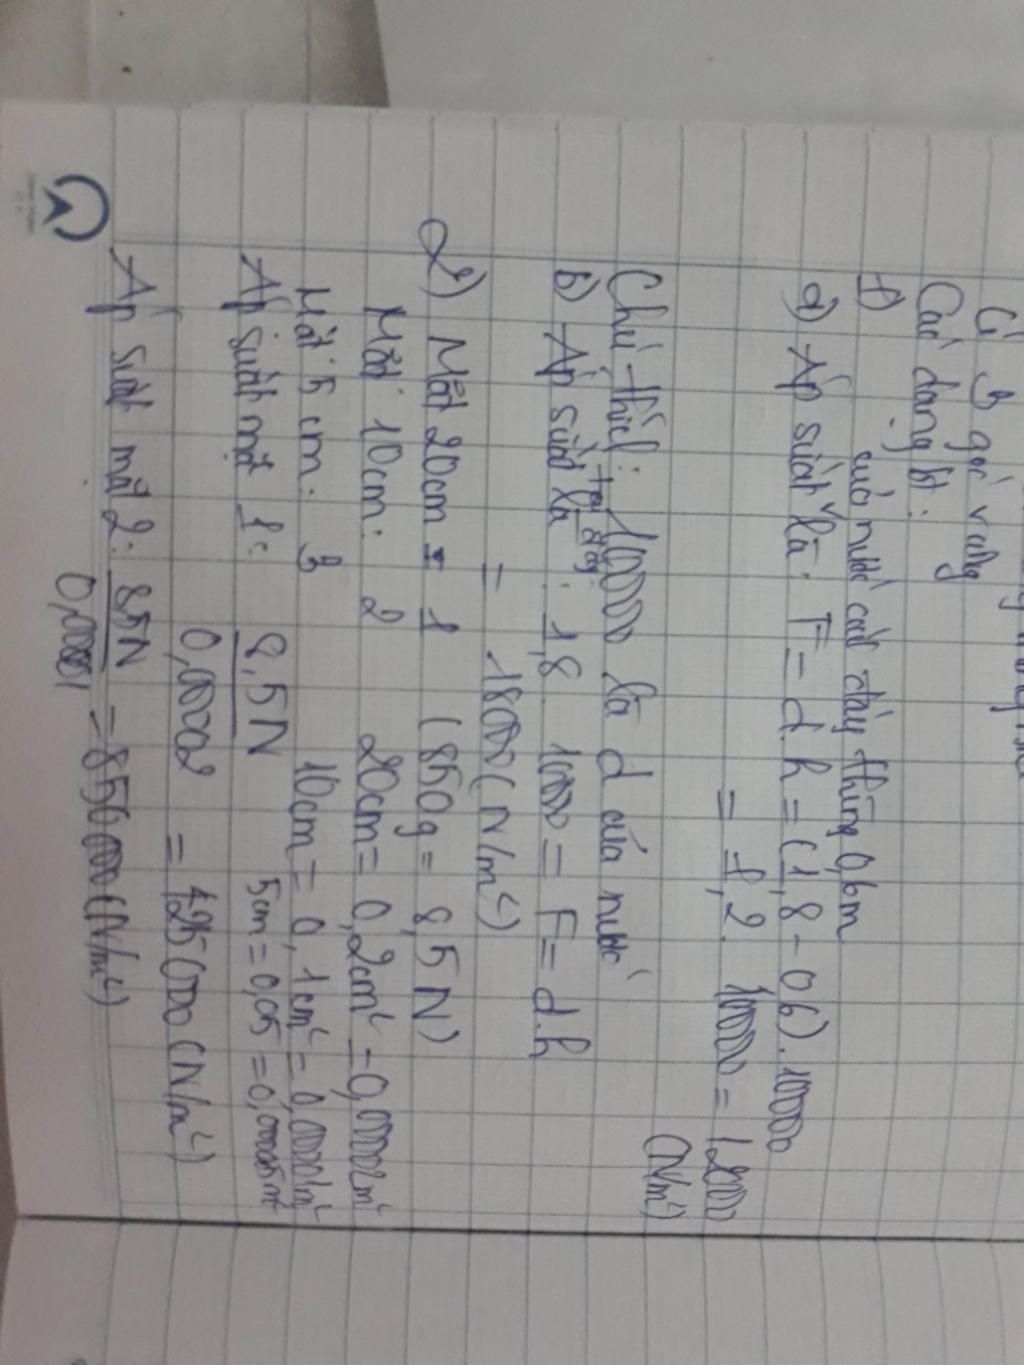 Có 3 góc vuông
Các dạng bt:
1)
của nước cách đáy thùng 0,6m
a) Áp suất là: F = d.h = (1,8 - 0,6).10000
= 1,2. 10000 = 12000
(N/m²)
Chú thích: 10000 là d của nước
tại đáy
b) Áp suất là: 1,8 10000 = F = d.h
= 18000 (N/m²)
2) Mặt 20cm = 1 (850g = 8,5N)
Mặt 10cm: 2 20cm = 0,2cm² = 0,00002m²
Mặt 5cm: 3 10cm = 0,1cm² = 0,00001m²
Áp suất mặt 1: 8,5N 5cm = 0,05 =
0,00002 = 425000 (N/m²)
Áp suất mặt 2: 8,5N = 850000 (N/m²)
0,00001